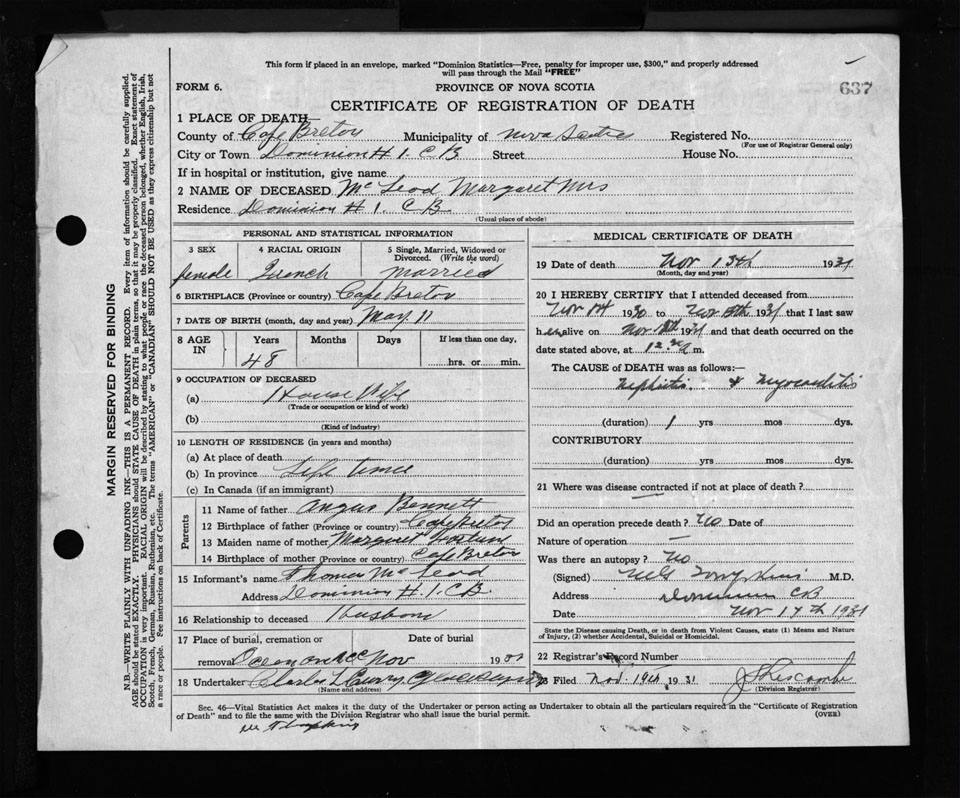 This form if placed in an envelope, marked "Dominion Statistics—Free, penalty for improper use, $300," and properly addressed
will pass through the Mail "FREE"
637
FORM 6.
PROVINCE OF NOVA SCOTIA
CERTIFICATE OF REGISTRATION OF DEATH
1 PLACE OF DEATH
County of Cape Breton Municipality of Nova Scotia Registered No.
(For use of Registrar General only)
City or Town Dominion # 1. C B Street House No.
If in hospital or institution, give name
2 NAME OF DECEASED McLeod Margaret Mrs
Residence Dominion # 1. C B.
(Usual place of abode)
PERSONAL AND STATISTICAL INFORMATION
3 SEX 4 RACIAL ORIGIN 5 Single, Married, Widowed or Divorced. (Write the word)
female French married
6 BIRTHPLACE (Province or country) Cape Breton
7 DATE OF BIRTH (month, day and year) May 11
8 AGE IN Years Months Days If less than one day,
48 hrs. or min.
9 OCCUPATION OF DECEASED
(a) House Wife
(Trade or occupation or kind of work)
(b)
(Kind of industry)
10 LENGTH OF RESIDENCE (in years and months)
(a) At place of death
(b) In province Life time
(c) In Canada (if an immigrant)
Parents
11 Name of father Angus Bennett
12 Birthplace of father (Province or country) Cape Breton
13 Maiden name of mother Margaret
14 Birthplace of mother (Province or country) Cape Breton
15 Informant's name Thomas McLeod
Address Dominion # 1. C B.
16 Relationship to deceased Husband
17 Place of burial, cremation or removal Date of burial
Nov 19
18 Undertaker Charles
(Name and address)
MEDICAL CERTIFICATE OF DEATH
19 Date of death Nov 13th 1931
(Month, day and year)
20 I HEREBY CERTIFY that I attended deceased from
Nov 1930 to Nov 1931 that I last saw
h er alive on Nov 1931 and that death occurred on the
date stated above, at 12 m.
The CAUSE of DEATH was as follows:—
Nephritis & Myocarditis
(duration) 1 yrs mos dys.
CONTRIBUTORY
(duration) yrs mos dys.
21 Where was disease contracted if not at place of death?
Did an operation precede death? No Date of
Nature of operation —
Was there an autopsy? No
(Signed) M.D.
Address Dominion CB
Date Nov 17th 1931
State the Disease causing Death, or in death from Violent Causes, state (1) Means and Nature
of Injury, (2) whether Accidental, Suicidal or Homicidal.
22 Registrar's Record Number
23 Filed Nov. 19th 1931
(Division Registrar)
Sec. 46—Vital Statistics Act makes it the duty of the Undertaker or person acting as Undertaker to obtain all the particulars required in the "Certificate of Registration
of Death" and to file the same with the Division Registrar who shall issue the burial permit.
(OVER)
MARGIN RESERVED FOR BINDING
N.B.—WRITE PLAINLY WITH UNFADING INK—THIS IS A PERMANENT RECORD. Every item of information should be carefully supplied.
AGE should be stated EXACTLY. PHYSICIANS should STATE CAUSE OF DEATH in plain terms, so that it may be properly classified. Exact statement of
OCCUPATION is very important. RACIAL ORIGIN will be described by stating to what people or race the deceased person belonged, whether English, Irish,
Scotch, French, German, Russian, Ruthenian, etc. The terms "AMERICAN" or "CANADIAN" SHOULD NOT BE USED as they express citizenship but not
a race or people. See instructions on back of Certificate.